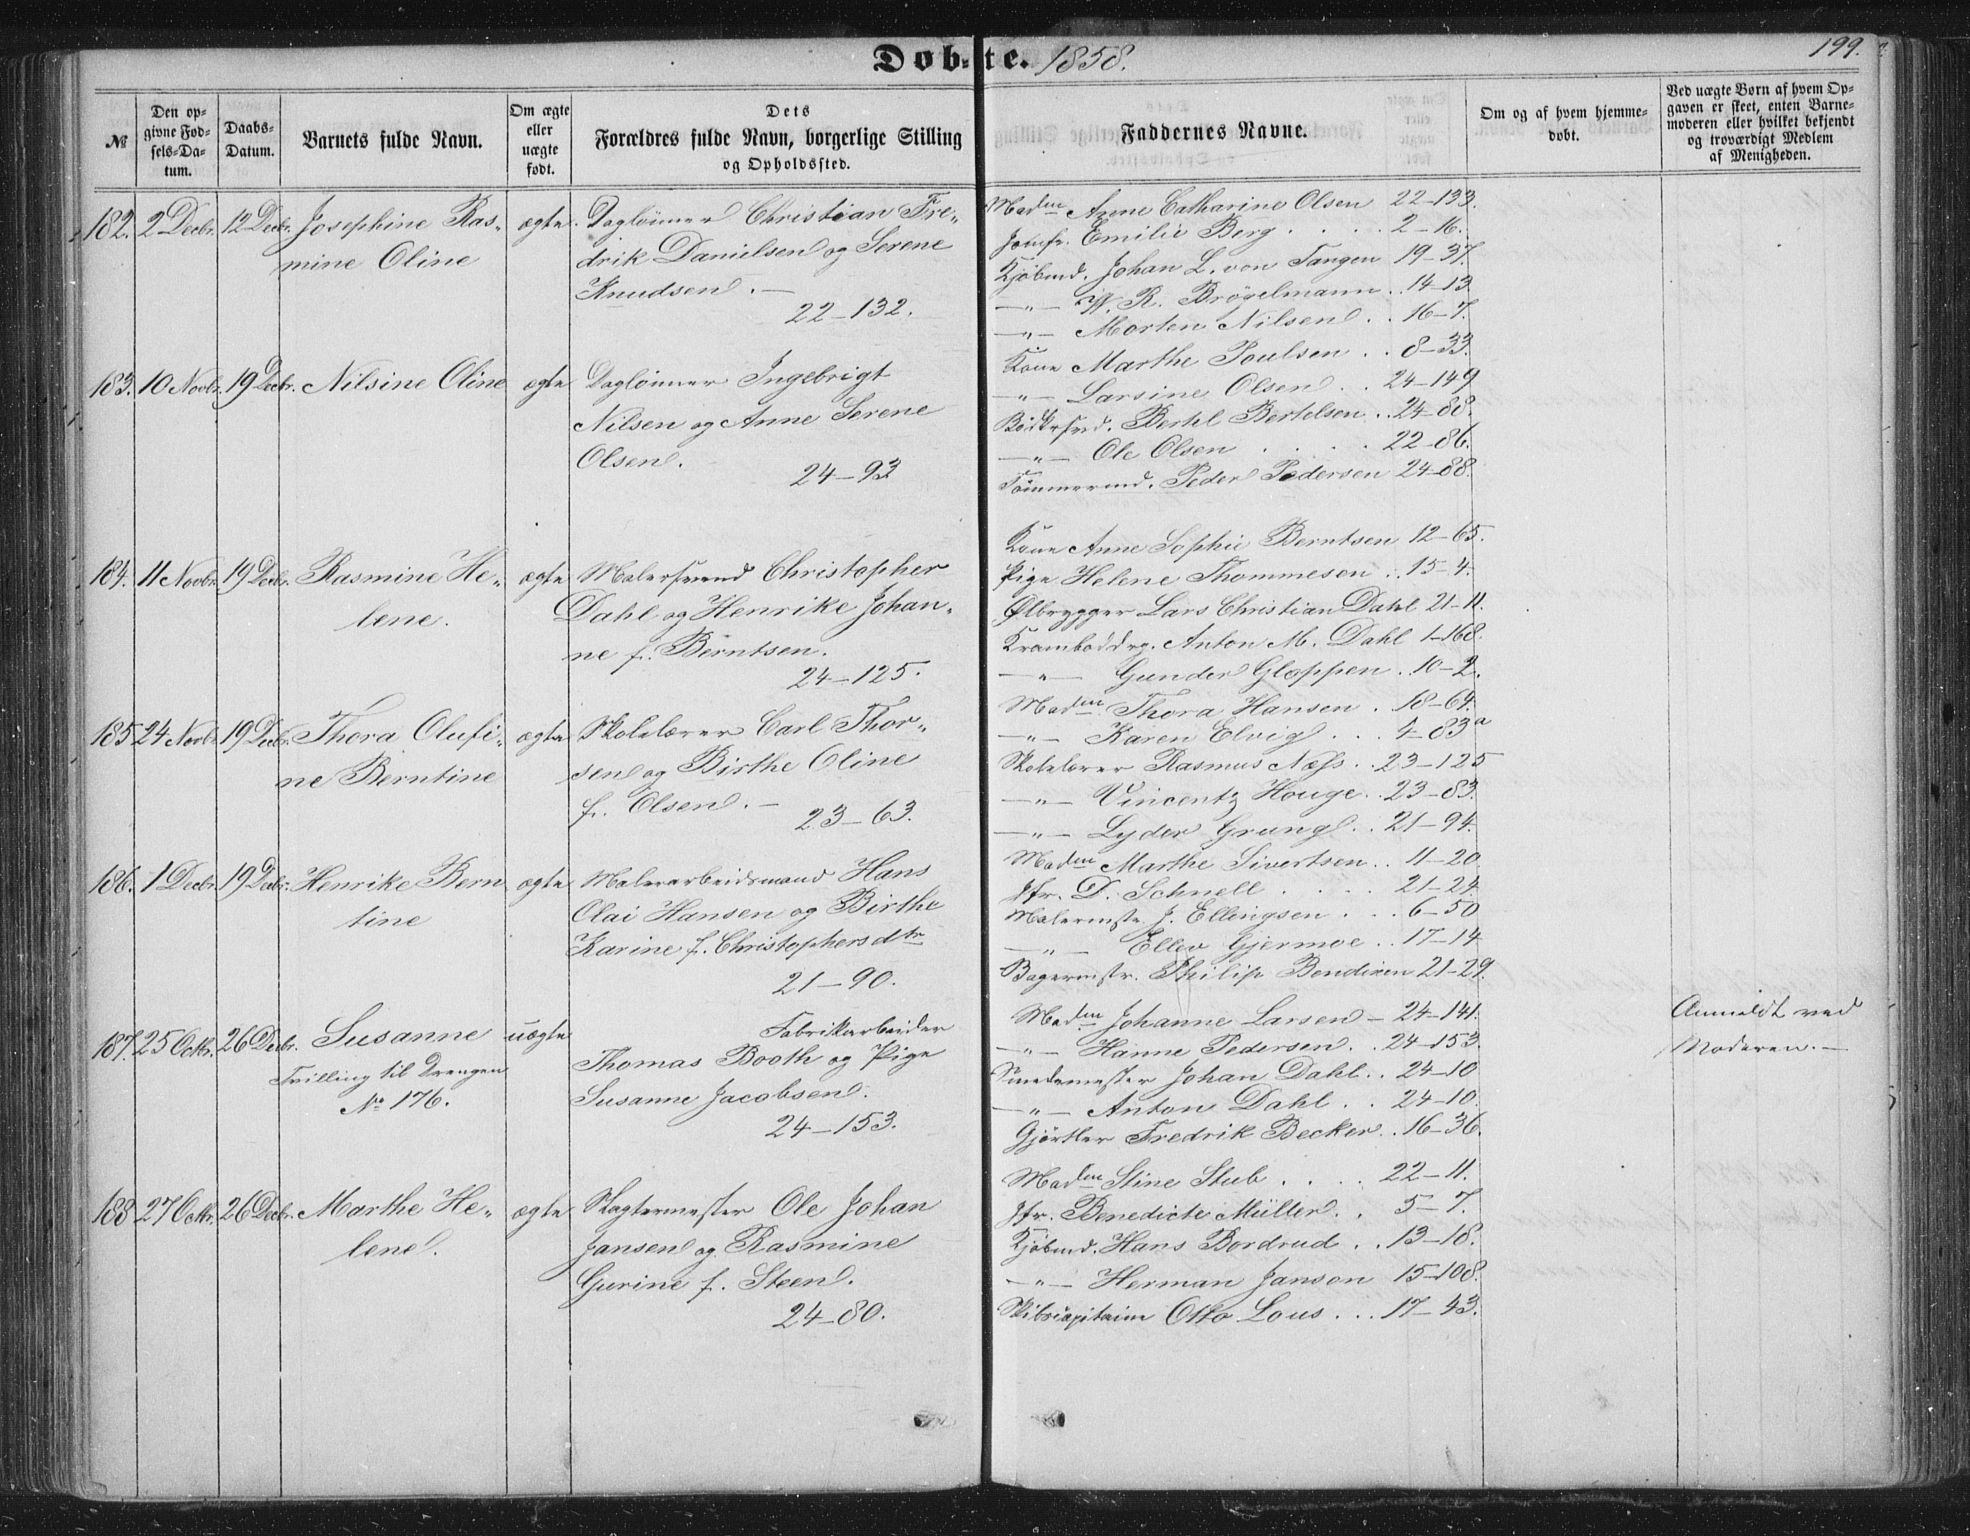 Døb-te. 1858.
199.
№
Den op-
givne Fød-
sels-Da-
tum.
Daabs-
Datum.
Barnets fulde Navn.
Om ægte
eller
uægte
født.
Dets
Forældres fulde Navn, borgerlige Stilling
og Opholdssted.
Faddernes Navne.
Om og af hvem hjemme-
døbt.
Ved uægte Børn af hvem Op-
gaven er skeet, enten Barne-
moderen eller hvilket bekjendt
og troværdigt Medlem
af Menigheden.
182. 2 Decbr. 12 Decbr. Josephine Ras-
mine Oline
ægte.
Daglønner Christian Fre-
drik Danielsen og Serene
Knudsen. —
22-132.
Madm Anne Catharine Olsen 22-133.
Jomfr. Emilie Berg . . . . 2-16.
Kjøbmd. Johan L. von Tangen 19-37.
—"— W. R. Brögelmann . . 14-13
—"— Morten Nilsen . . 16-7.
183. 10 Novbr. 19 Decbr. Nilsine Oline
ægte
Daglønner Ingebrigt
Nilsen og Anne Serene
Olsen.
24-93
Kone Marthe Poulsen . . 8-33.
—"— Larsine Olsen . . 24-149
Bødkersvd. Bertel Bertelsen . . 24-88.
—"— Ole Olsen . . . . 22-86.
Tømmermd. Peder Pedersen 24-88.
184. 11 Novbr. 19 Decbr. Rasmine He-
lene.
ægte
Malersvend Christopher
Dahl og Henrike Johan-
ne f. Berntsen.
24-125.
Kone Anne Sophie Berntsen 12-65.
Pige Helene Thommesen . . 15-4.
Ølbrygger Lars Christian Dahl 21-11.
Kramboddrg. Anton M. Dahl 1-168.
—"— Gunder Gloppen . 10-2.
185 24 Novbr. 19 Decbr. Thora Olufi-
ne Berntine
ægte
Skolelærer Carl Thor-
sen og Birthe Oline
f. Olsen. —
23-63.
Madm Thora Hansen . 18-64.
—"— Karen Elvig . . . 4-83a
Skolelærer Rasmus Næss . . 23-125
—"— Vincentz Houge . . 23-83.
—"— Lyder Grung . . 21-94.
186. 1 Decbr. 19 Decbr. Henrike Bern
tine
ægte
Malerarbeidsmand Hans
Olai Hansen og Birthe
Karine f. Christophersdtr
21-90.
Madm Marthe Sivertsen . . 11-20
Jfr. D. Schnell . . . . 21-24
Malermstr. J. Ellingsen . . . 6-50
—"— Ellev Gjermoe . . 17-14
Bagermstr. Philip Bendixen 21-29.
187. 25 Octbr. 26 Decbr. Susanne
Tvilling til Drengen
No 176.
uægte
Fabrikarbeider
Thomas Booth og Pige
Susanne Jacobsen.
24-153.
Madm Johanne Larsen - 24-141.
—"— Hanne Pedersen . . 24-153
Smedemester Johan Dahl . . 24-10
—"— Anton Dahl . . 24-10.
Gjørtler Fredrik Becker . . 16-36.
Anmeldt ved
Moderen. —
188 27 Octbr. 26 Decbr. Marthe He-
lene.
ægte
Slagtermester Ole Johan
Jansen og Rasmine
Gurine f. Steen.
24-80.
Madm Stine Stub . . . . 22-11.
Jfr. Benedicte Müller . . 5-7.
Kjøbmd. Hans Bordrud . . 13-18.
—"— Herman Janson 15-108.
Skibscapitain Otto Lous . . . 17-43.